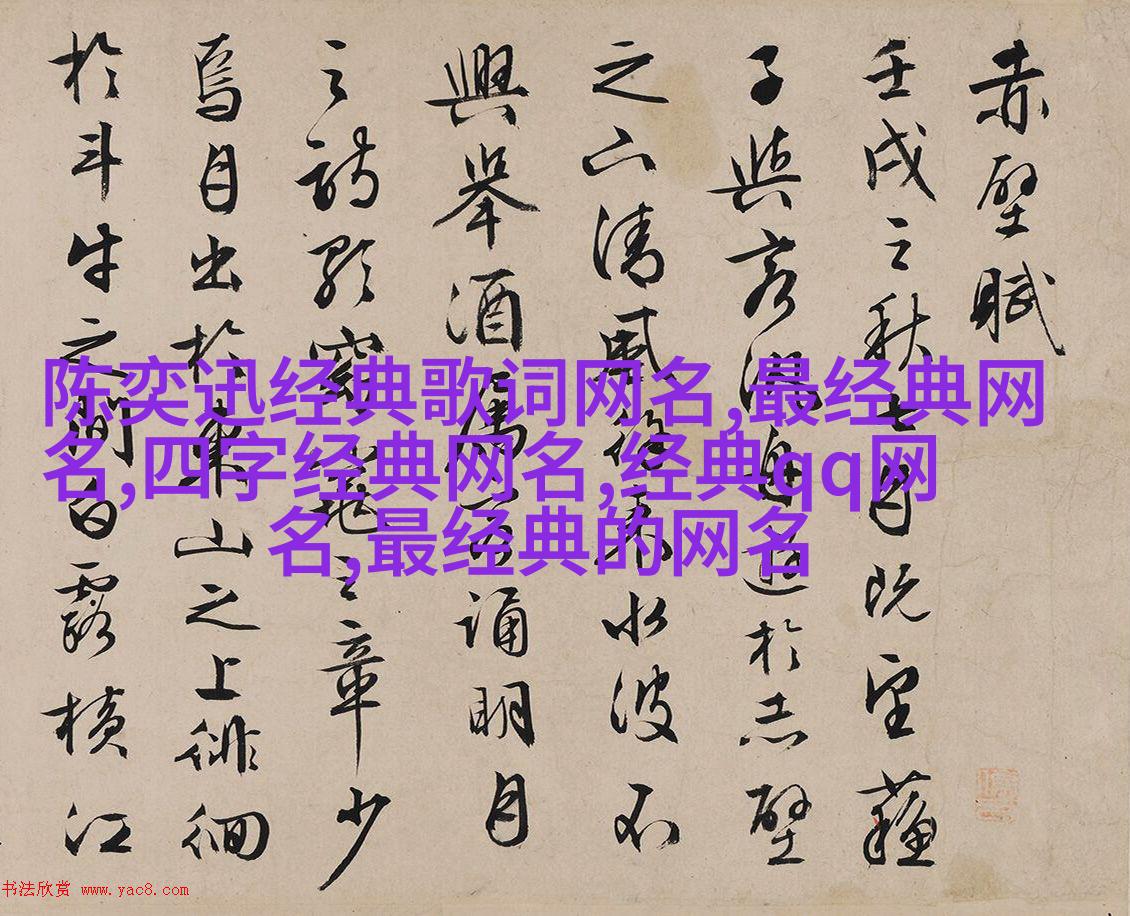 赤壁賦
壬戌之秋七月既望蘇
子與客泛舟遊於赤壁
之下清風徐來水波不
興舉酒屬客誦明月
之詩歌窈窕之章少
焉月出於東山之上徘徊
於斗牛之間白露橫江
陈奕迅经典歌词网名,最经典网
名,四字经典网名,经典qq网
名,最经典的网名
书法欣赏 www.yac8.com